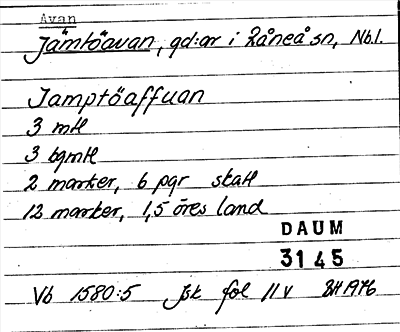 Avan
Jämtöavan, gd:ar i Råneå sn, Nb.l.
Jamptöaffuan
3 mtl
3 bgmtl
2 marker, 6 pgr skatt
12 marker, 1,5 öres land
DAUM
3145
Vb 1580:5 Jsk fol 11v